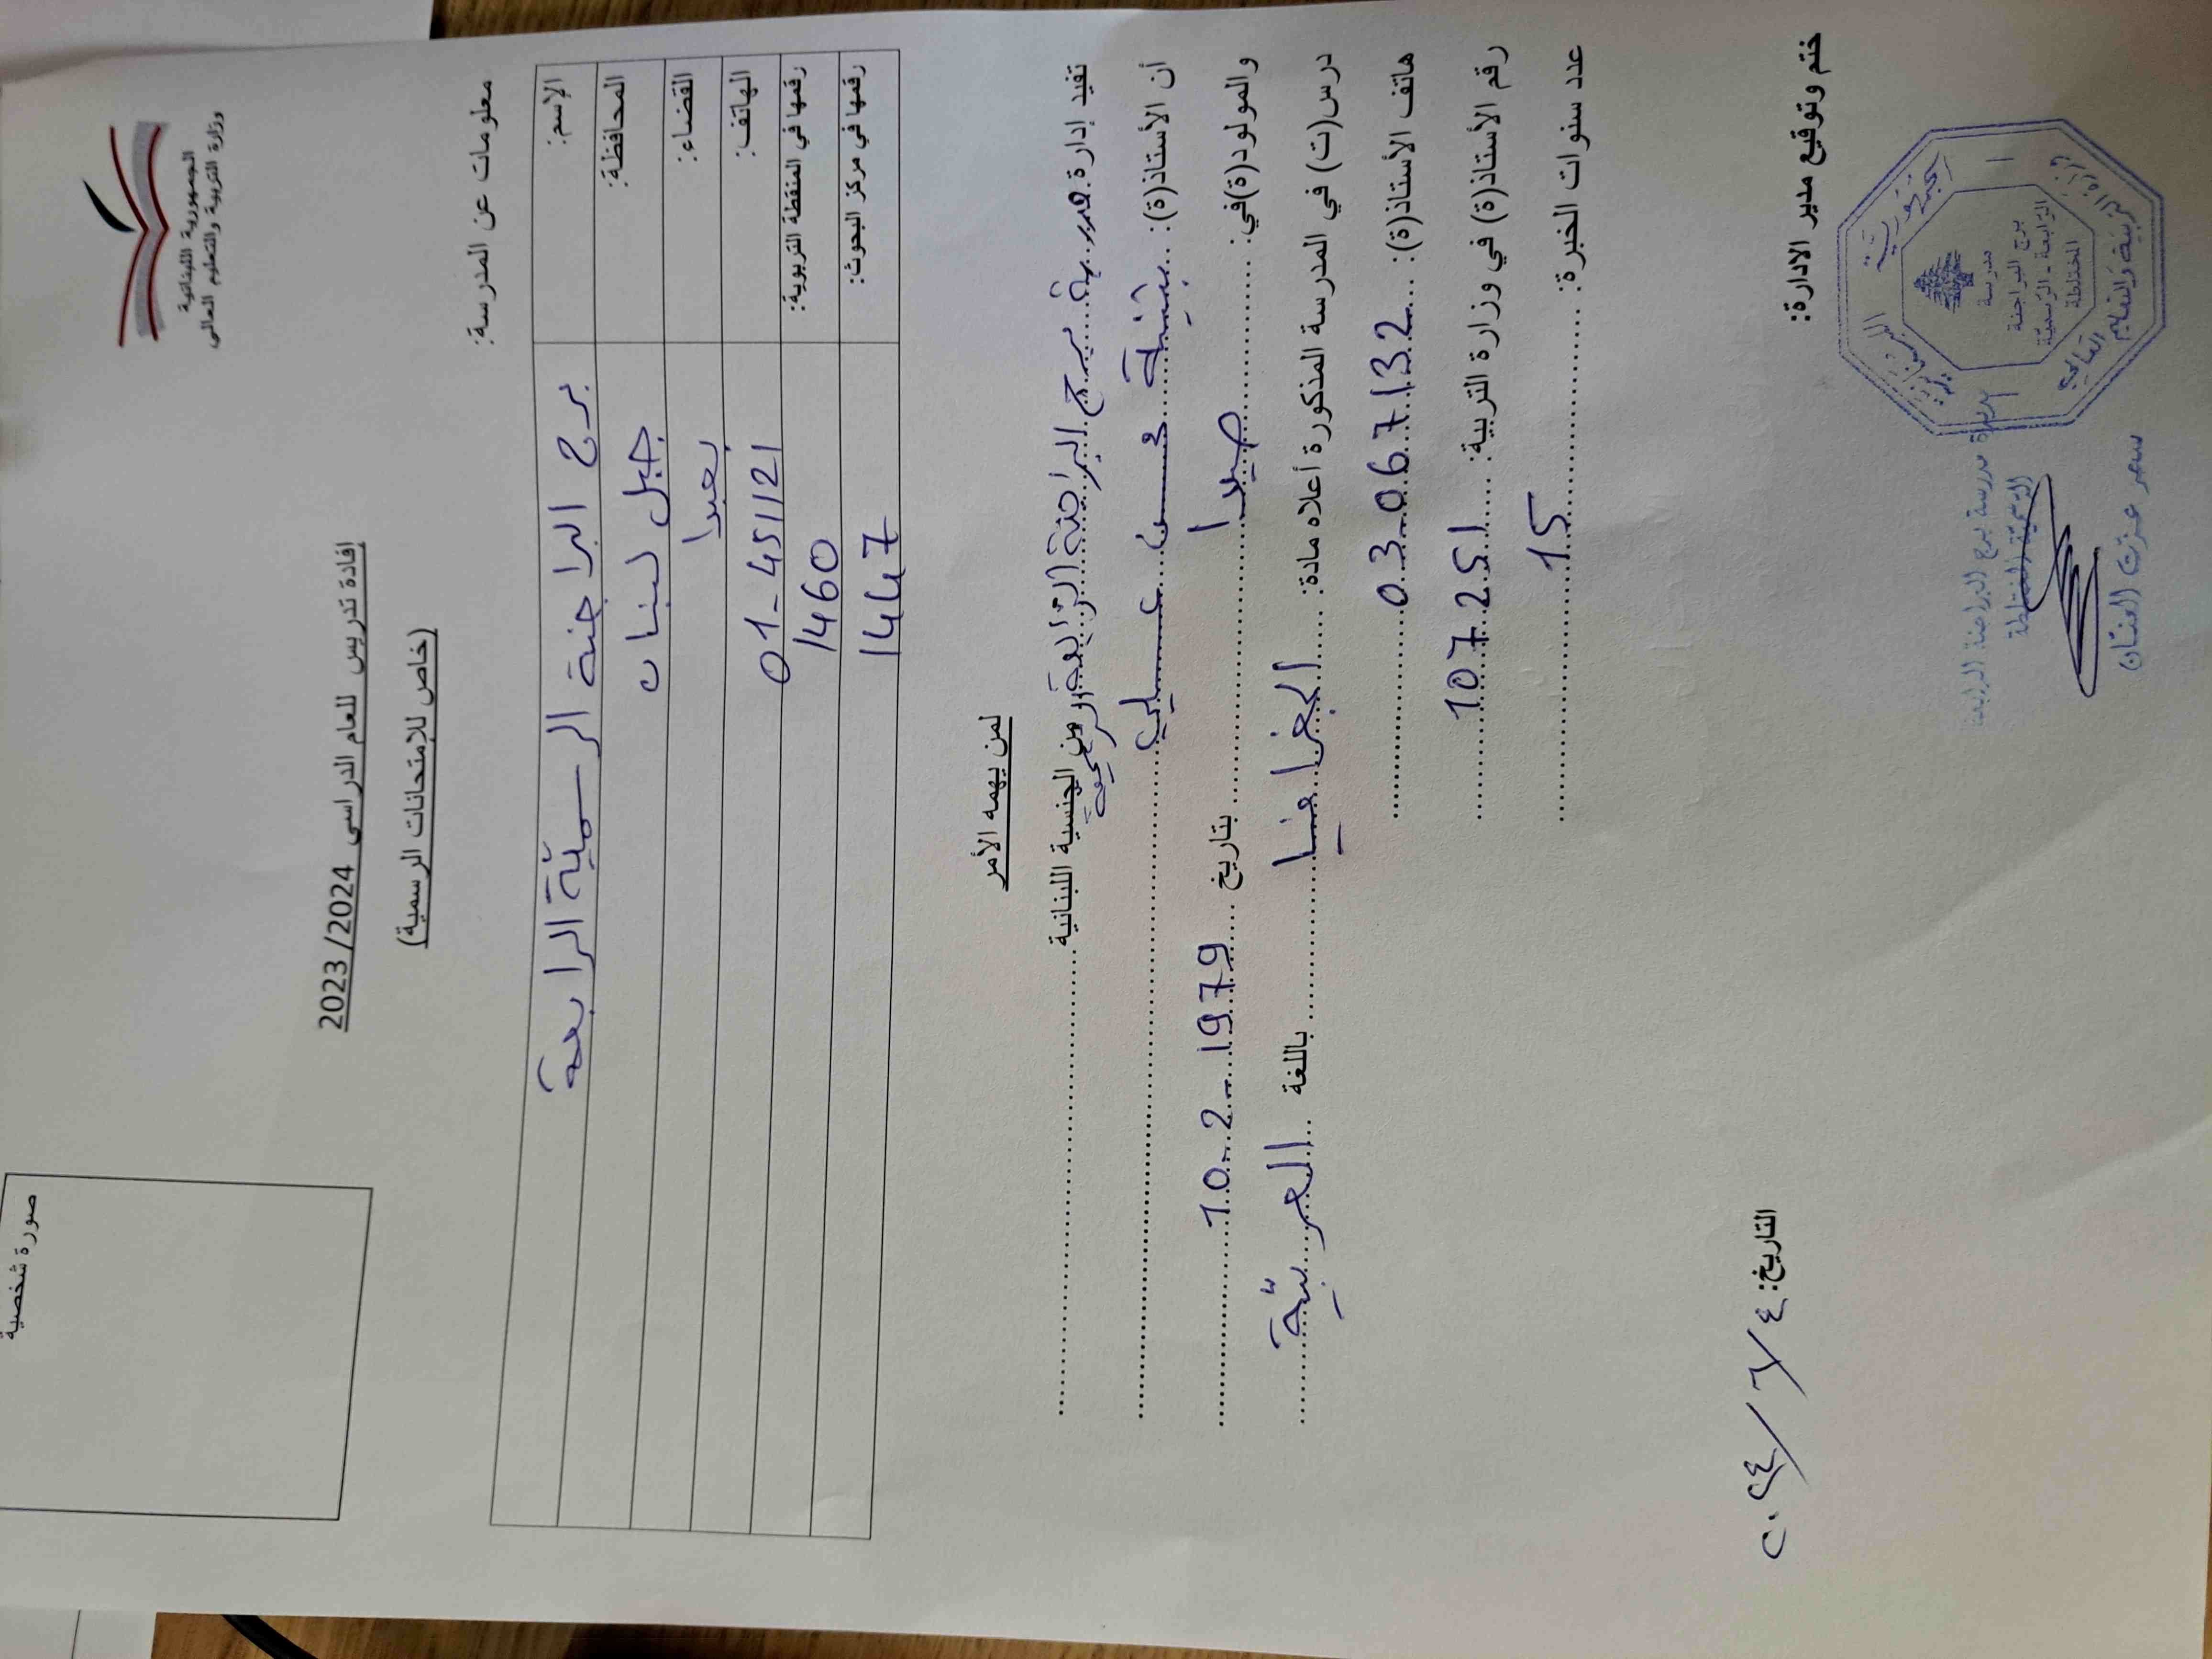 الجمهورية اللبنانية
وزارة التربية والتعليم العالي
صورة شخصية
إفادة تدريس للعام الدراسي 2023/2024
(خاص للإمتحانات الرسمية)
معلومات عن المدرسة:
الإسم: برج البراجنة الرسميّة الرابعة
المحافظة: جبل لبنان
القضاء: بعبدا
الهاتف: 01-451121
رقمها في المنطقة التربوية: 1460
رقمها في مركز البحوث: 1447
لمن يهمه الأمر
تفيد إدارة مدرسة برج البراجنة الرابعة الرسمية من الجنسية اللبنانية
أن الأستاذ(ة): بثينة حسن علي
والمولود(ة)في: صيدا بتاريخ 10-2-1979
درس(ت) في المدرسة المذكورة أعلاه مادة: الجغرافيا باللغة العربيّة
هاتف الأستاذ(ة): 03-067132
رقم الأستاذ(ة) في وزارة التربية: 107251
عدد سنوات الخبرة: 15
ختم وتوقيع مدير الادارة:
التاريخ: ٢٠٢٤/٦/٤
الجمهورية اللبنانية
وزارة التربية والتعليم العالي
مدرسة
برج البراجنة
الرابعة - الرسميّة
المختلطة
مديرة مدرسة برج البراجنة الرابعة
الرسمية المختلطة
سمر عزت العنان